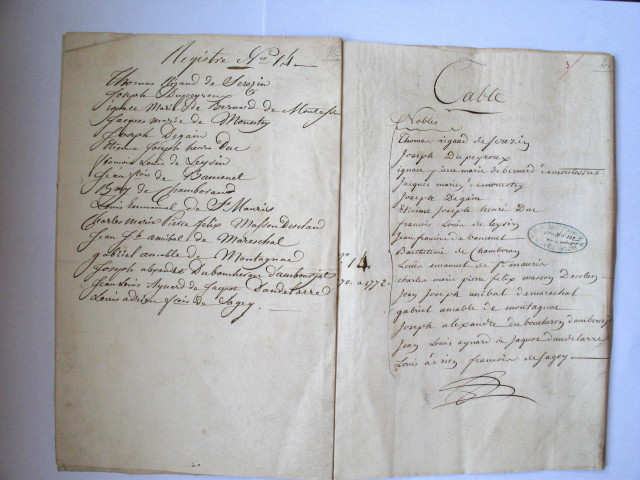 Registre Nro 14
Thomas Rigaud de Serezin
Joseph Dupeyroux
ignace Marie de Bernard de Montessu
Jacques marie de Monestoy
Joseph Degain
Etienne Joseph henri Duc
francois Louis de Leyssin
Jean fois de Bamenel
Bmy de Chamborand
Louis Emmanuel de St Mauris
Charles Marie Pierre felix Masson Descland
Jean Bte annibal de Mareschal
gabriel amable de Montagnac
Joseph alexandre Duboucheron d'ambourgat
Jean Louis Aynard de Jaquot Dandelarre
Louis adrien fcois de Sagey
2
Table
Nobles
thomas rigaud de serezin
Joseph Dupeyroux
ignace marie de bernard demontessus
Jacques marie demonestoy
Joseph Degain
Etienne Joseph henri Duc
francois Louis de leysin
Jean francois de bamenel
Barthelemi de Chamboran
Louis emanuel de St mauris
charles marie pierre felix masson
Jean Joseph anibal demarechal
gabriel amable de montagnac
Joseph alexandre du boucheron dambourg
Jean Louis aynard de Jaquot dandelarre
Louis adrien francois de sagey
no
14
70. a 1772.